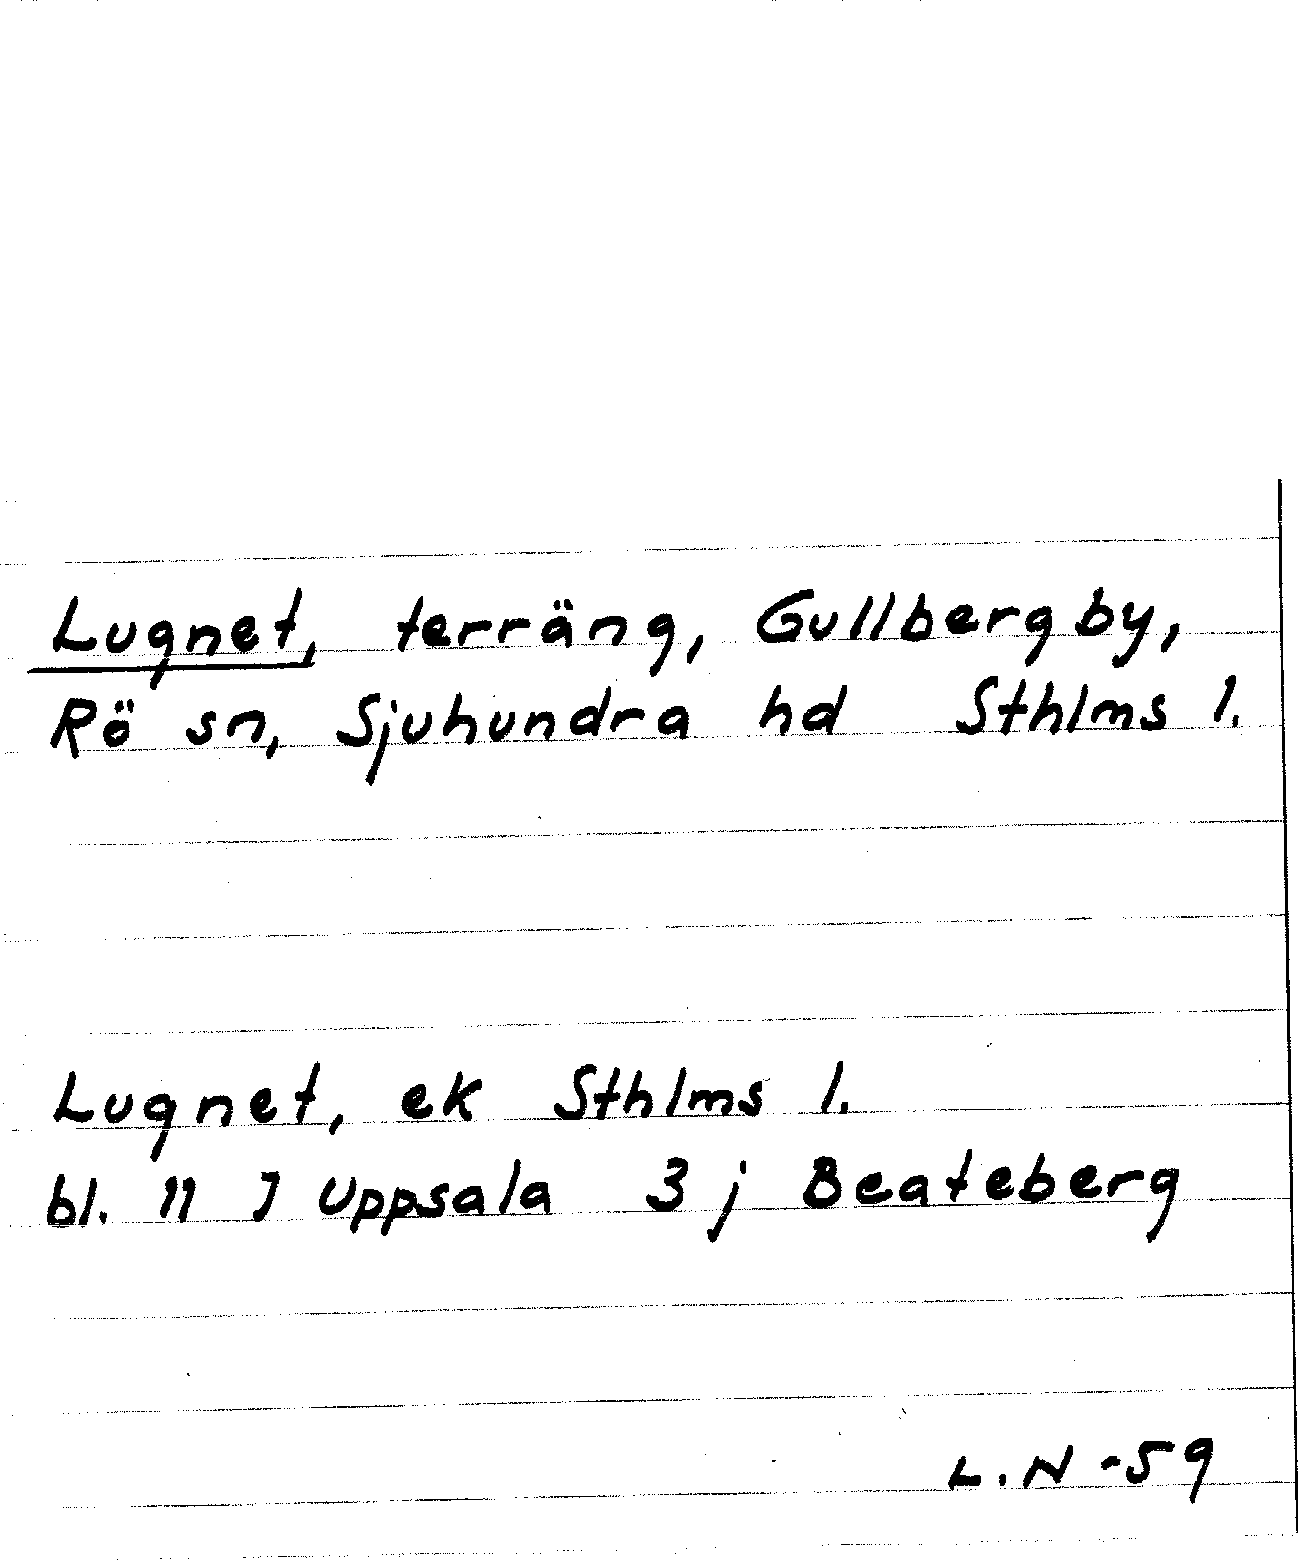 Lugnet, terräng, Gullbergby,
Rö sn, Sjuhundra hd Sthlms l.
Lugnet, ek Sthlms l.
bl. 11 J Uppsala 3 j Beateberg
L.N -59